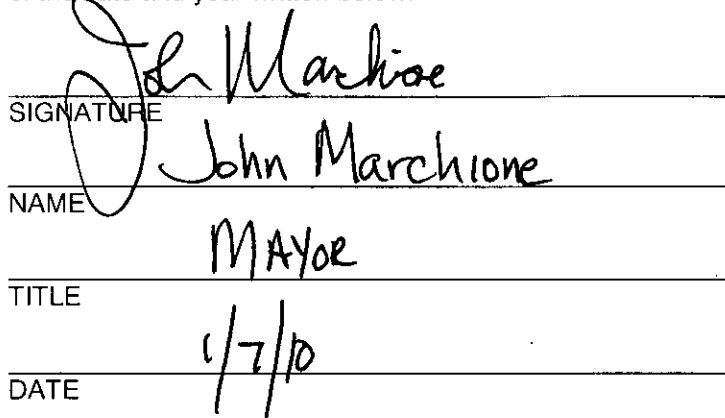 John Marchione
SIGNATURE
John Marchione
NAME
MAYOR
TITLE
1/7/10
DATE